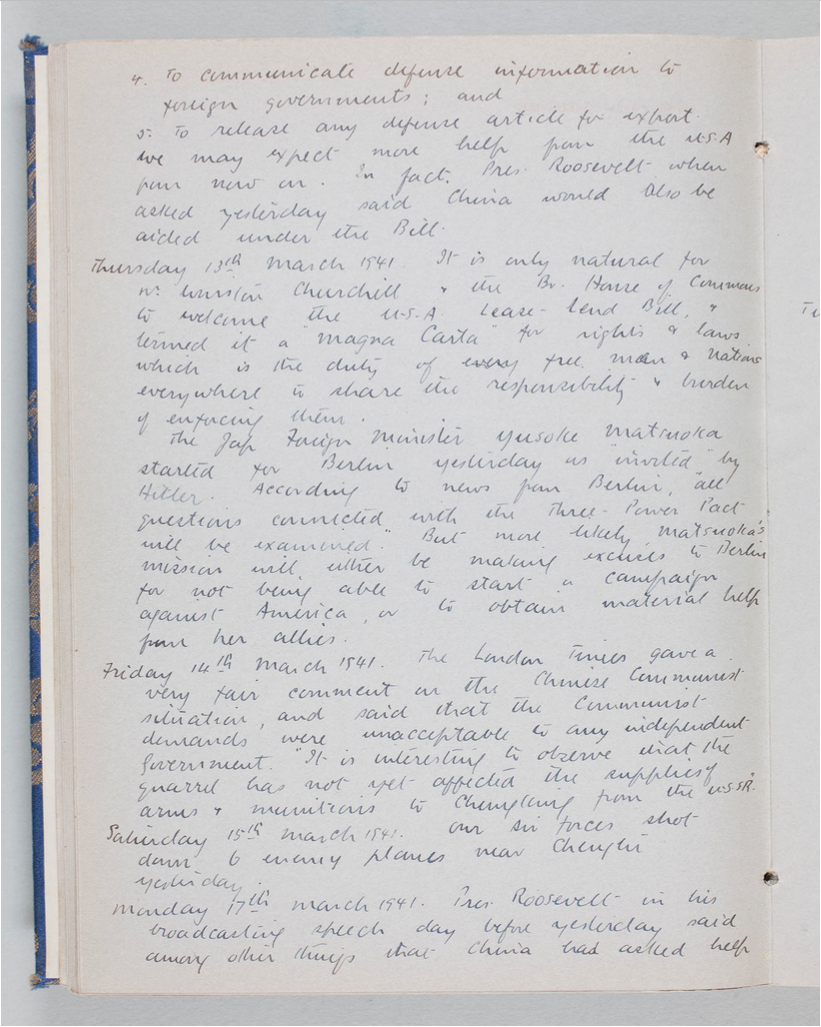 4. To communicate defense information to
foreign governments; and
5. To release any defense article for export.
We may expect more help from the U.S.A
from now on. In fact, Pres. Roosevelt when
asked yesterday said China would also be
aided under the Bill.
Thursday 13th March 1941. It is only natural for
Mr. Winston Churchill & the Br. House of Commons
to welcome the U.S.A. Lease-Lend Bill, &
termed it a "Magna Carta" for rights & laws
which is the duty of every free man & nations
everywhere to share the responsibility & burden
of enforcing them.
The Jap Foreign Minister Yusoke Matsuoka
started for Berlin yesterday as "invited" by
Hitler. According to news from Berlin, "all
questions connected with the Three-Power Pact
will be examined." But more likely Matsuoka's
mission will either be making excuses to Berlin
for not being able to start a campaign
against America, or to obtain material help
from her allies.
Friday 14th March 1941. The London Times gave a
very fair comment on the Chinese Communist
situation, and said that the Communist
demands were unacceptable to any independent
Government. "It is interesting to observe that the
quarrel has not yet affected the supplies of
arms & munitions to Chungking from the U.S.S.R."
Saturday 15th March 1941. Our air forces shot
down 6 enemy planes near Chengtu
yesterday.
Monday 17th March 1941. Pres. Roosevelt in his
broadcasting speech day before yesterday said
among other things that China had asked help